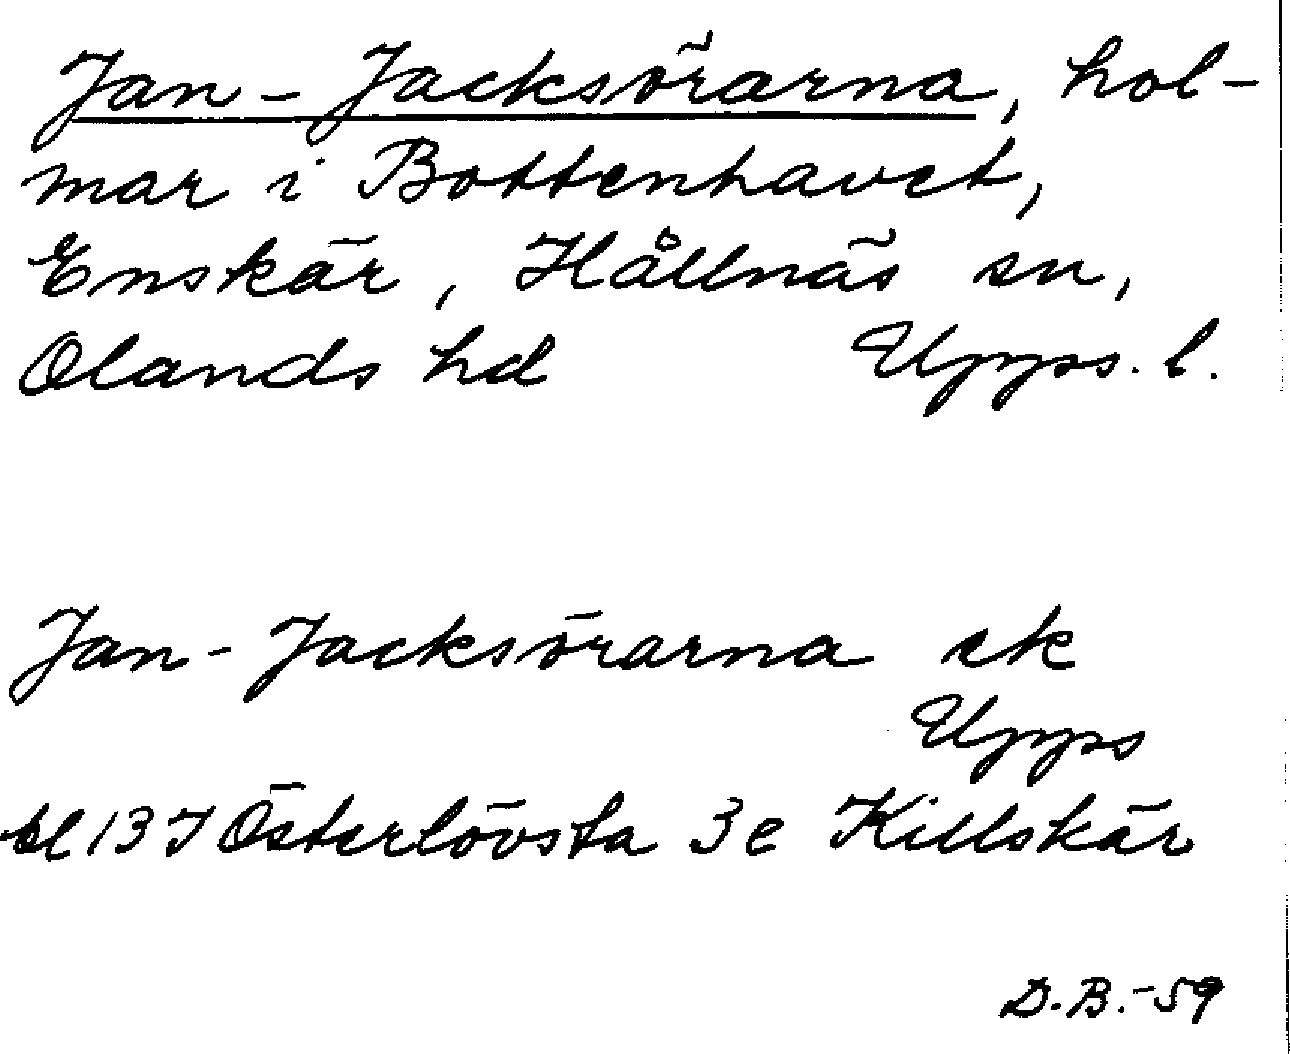 Jan-Jacksörarna, hol-
mar i Bottenhavet,
Enskär, Hållnäs sn,
Olands hd Upps. l.
Jan-Jacksörarna ek
Upps
bl 13 I Österlövsta 3e Killskär
D.B.-59